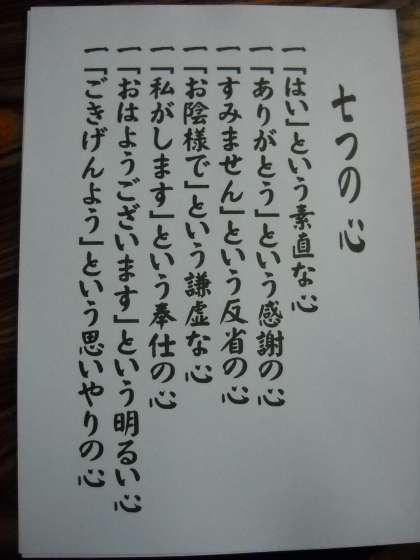 七つの心
一「はい」という素直な心
一「ありがとう」という感謝の心
一「すみません」という反省の心
一「お陰様で」という謙虚な心
一「私がします」という奉仕の心
一「おはようございます」という明るい心
一「ごきげんよう」という思いやりの心